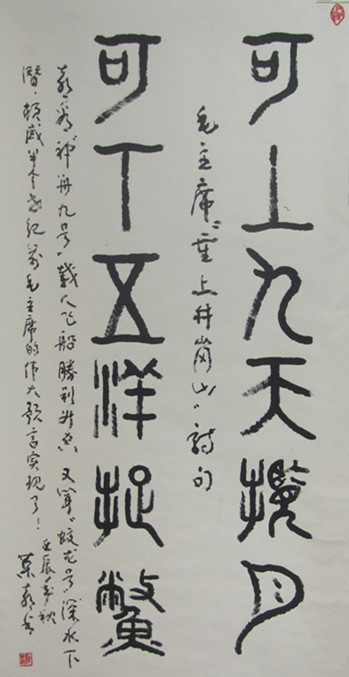 可上九天攬月
毛主席“重上井崗山”詩句
可下五洋捉鱉
看“神舟九号”载人飞船勝利升空 又闻“蛟龙号”深水下
潜，顿感半个世纪前毛主席的伟大预言实现了！
壬辰年秋